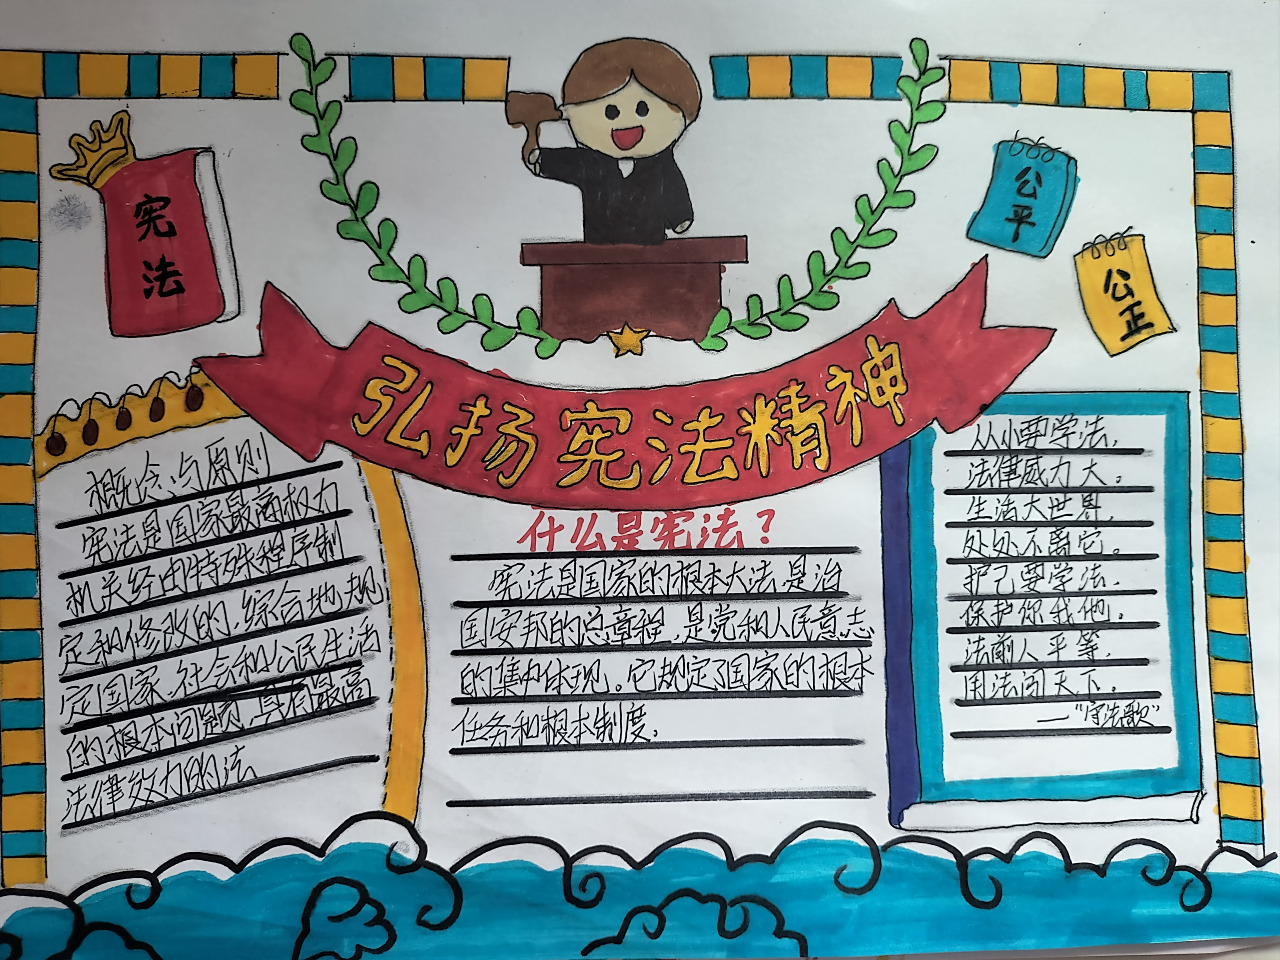 宪法
公平
公正
弘扬宪法精神
概念与原则
宪法是国家最高权力
机关经由特殊程序制
定和修改的，综合地规
定国家、社会和公民生活
的根本问题，具有最高
法律效力的法
什么是宪法？
宪法是国家的根本大法，是治
国安邦的总章程，是党和人民意志
的集中体现。它规定了国家的根本
任务和根本制度。
从小要学法，
法律威力大。
生活大世界，
处处不离它。
护己要学法，
保护你我他。
法前人平等，
用法闯天下。
——“守法歌”